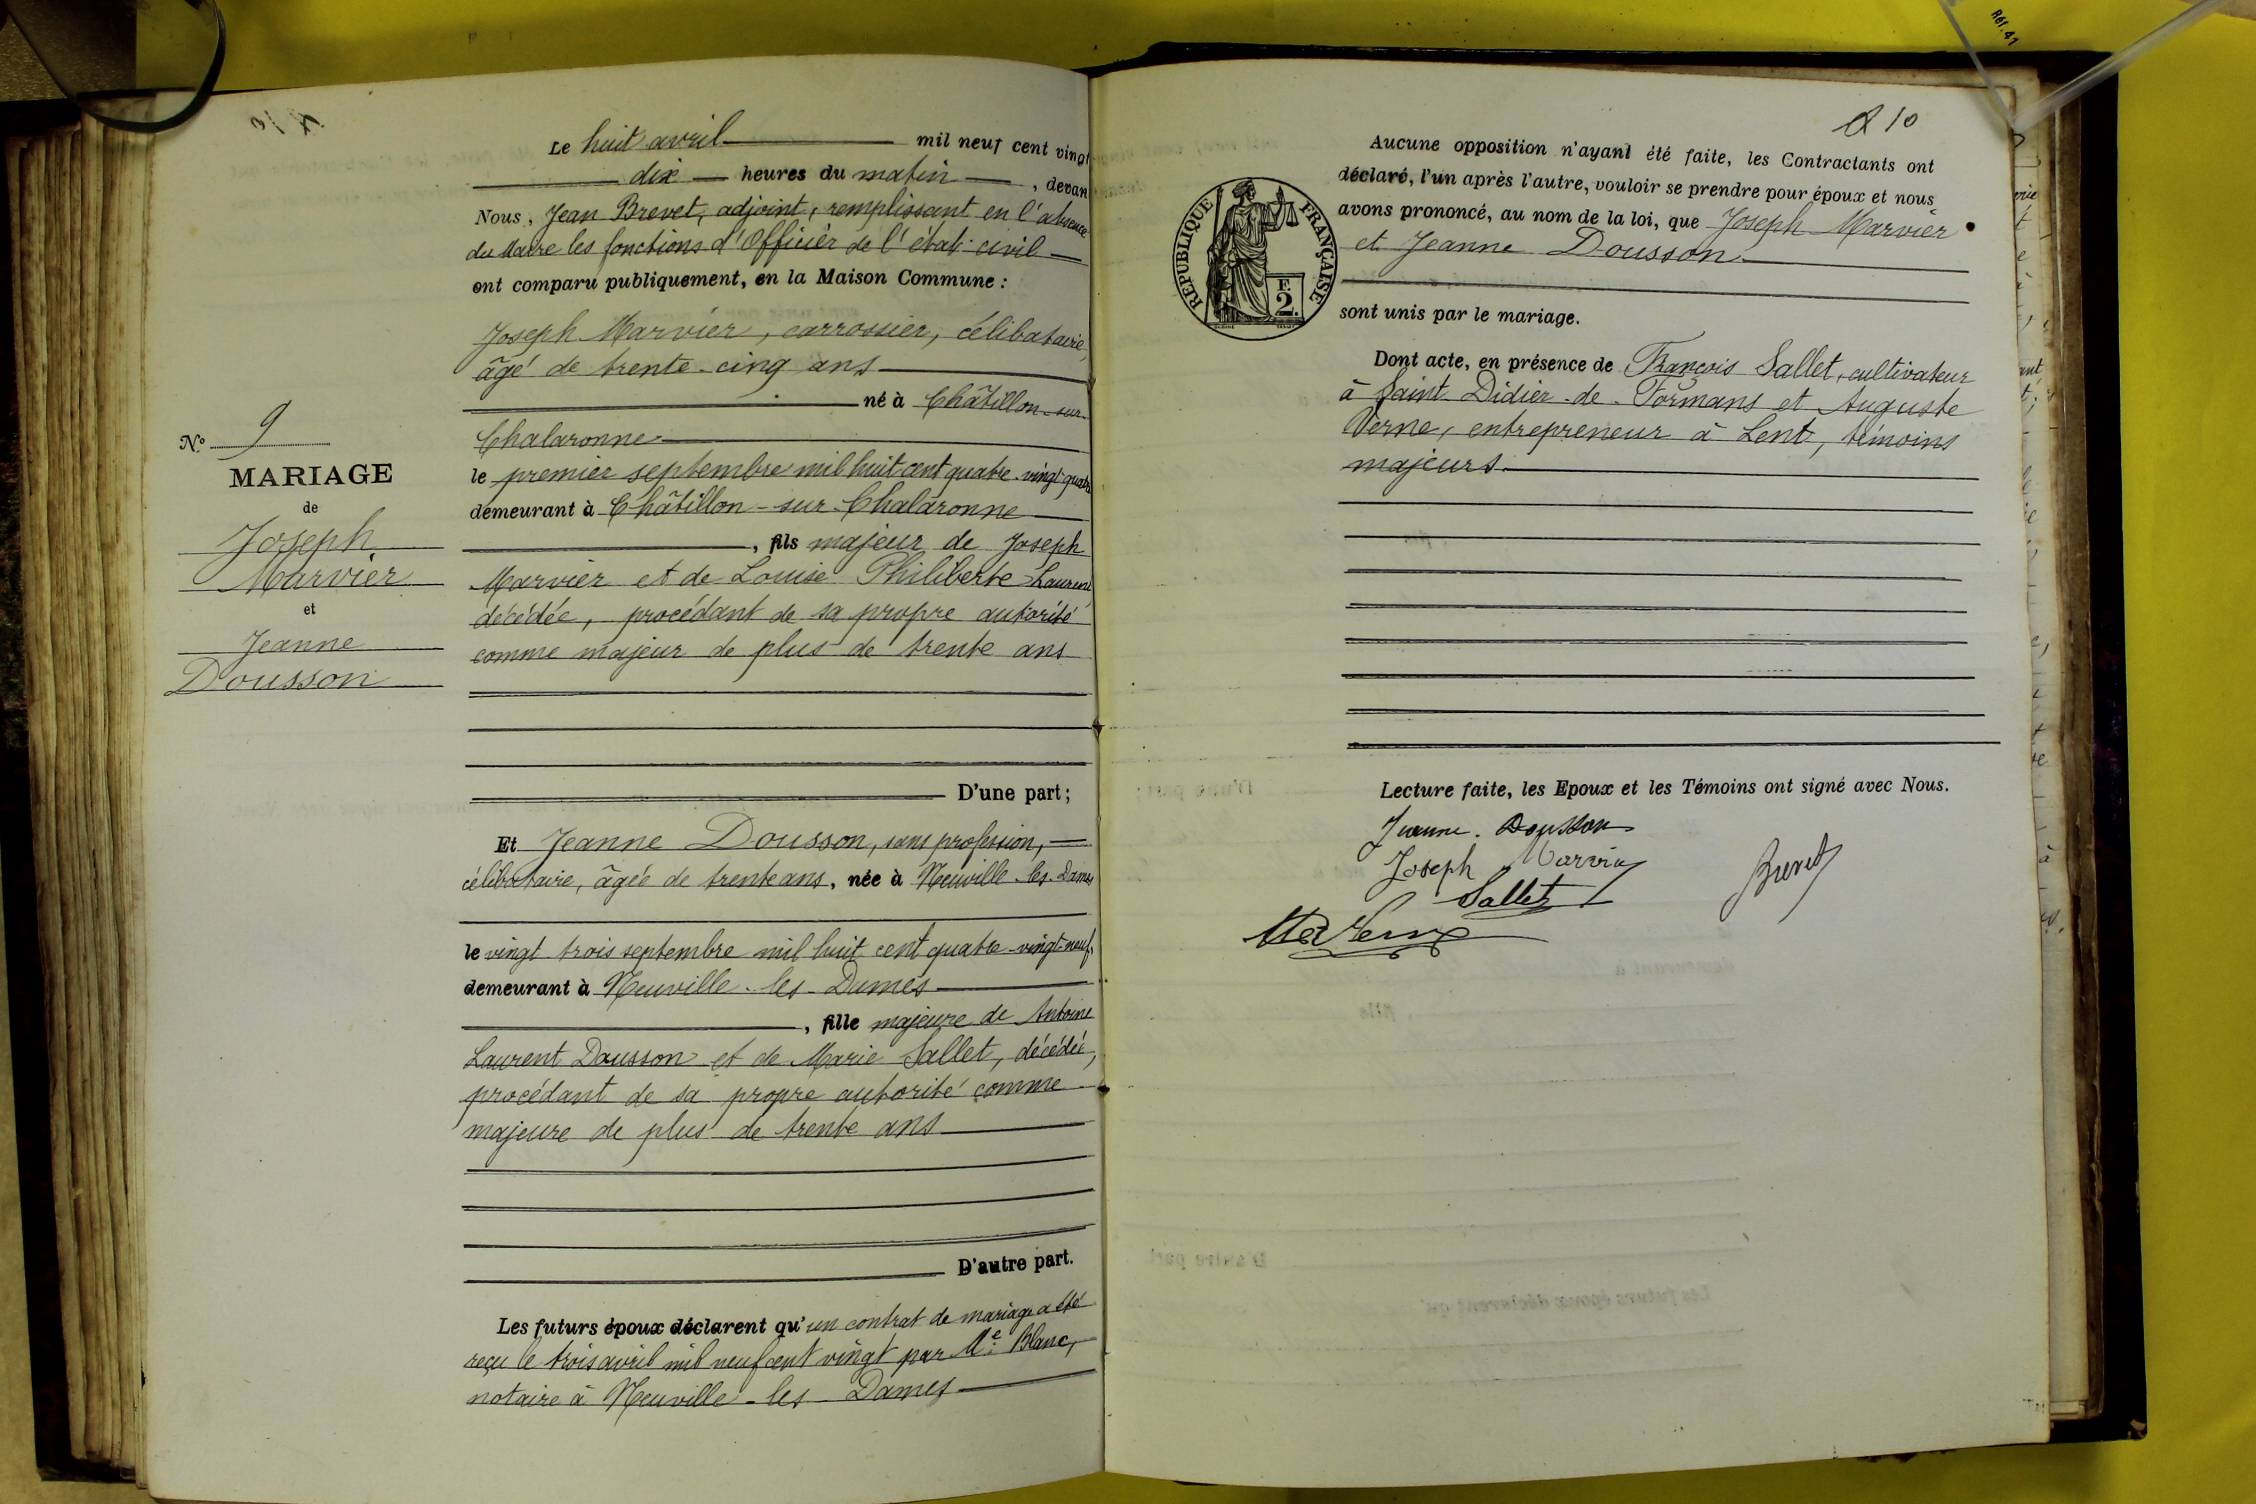 Le huit avril mil neuf cent vingt
dix heures du matin, devan
Nous, Jean Brevet, adjoint, remplissant en l'absence
du Maire les fonctions d'Officier de l'état-civil
ont comparu publiquement, en la Maison Commune :
Joseph Marvier, carrossier, célibataire,
âgé de trente-cinq ans
né à Châtillon-sur-
Chalaronne
le premier septembre mil huit cent quatre-vingt-quatre
demeurant à Châtillon-sur-Chalaronne
, fils majeur de Joseph
Marvier et de Louise Philiberte Laurent
décédée, procédant de sa propre autorité
comme majeur de plus de trente ans
D'une part;
N° 9
MARIAGE
de
Joseph
Marvier
et
Jeanne
Dousson
Et Jeanne Dousson, sans profession,
célibataire, âgée de trente ans, née à Neuville-les-Dames
le vingt trois septembre mil huit cent quatre-vingt-neuf,
demeurant à Neuville-les-Dames
, fille majeure de Antoine
Laurent Dousson et de Marie Sallet, décédée,
procédant de sa propre autorité comme
majeure de plus de trente ans
D'autre part.
Les futurs époux déclarent qu'un contrat de mariage a été
reçu le trois avril mil neuf cent vingt par Me Blanc,
notaire à Neuville-les-Dames
10
Aucune opposition n'ayant été faite, les Contractants ont
déclaré, l'un après l'autre, vouloir se prendre pour époux et nous
avons prononcé, au nom de la loi, que Joseph Marvier
et Jeanne Dousson
sont unis par le mariage.
RÉPUBLIQUE FRANÇAISE
F.
2.
Dont acte, en présence de François Sallet, cultivateur
à Saint-Didier-de-Formans et Auguste
Verne, entrepreneur à Lent, témoins
majeurs
Lecture faite, les Epoux et les Témoins ont signé avec Nous.
Jeanne. Dousson
Joseph Marvier
Brevet
Sallet
Réf. 41